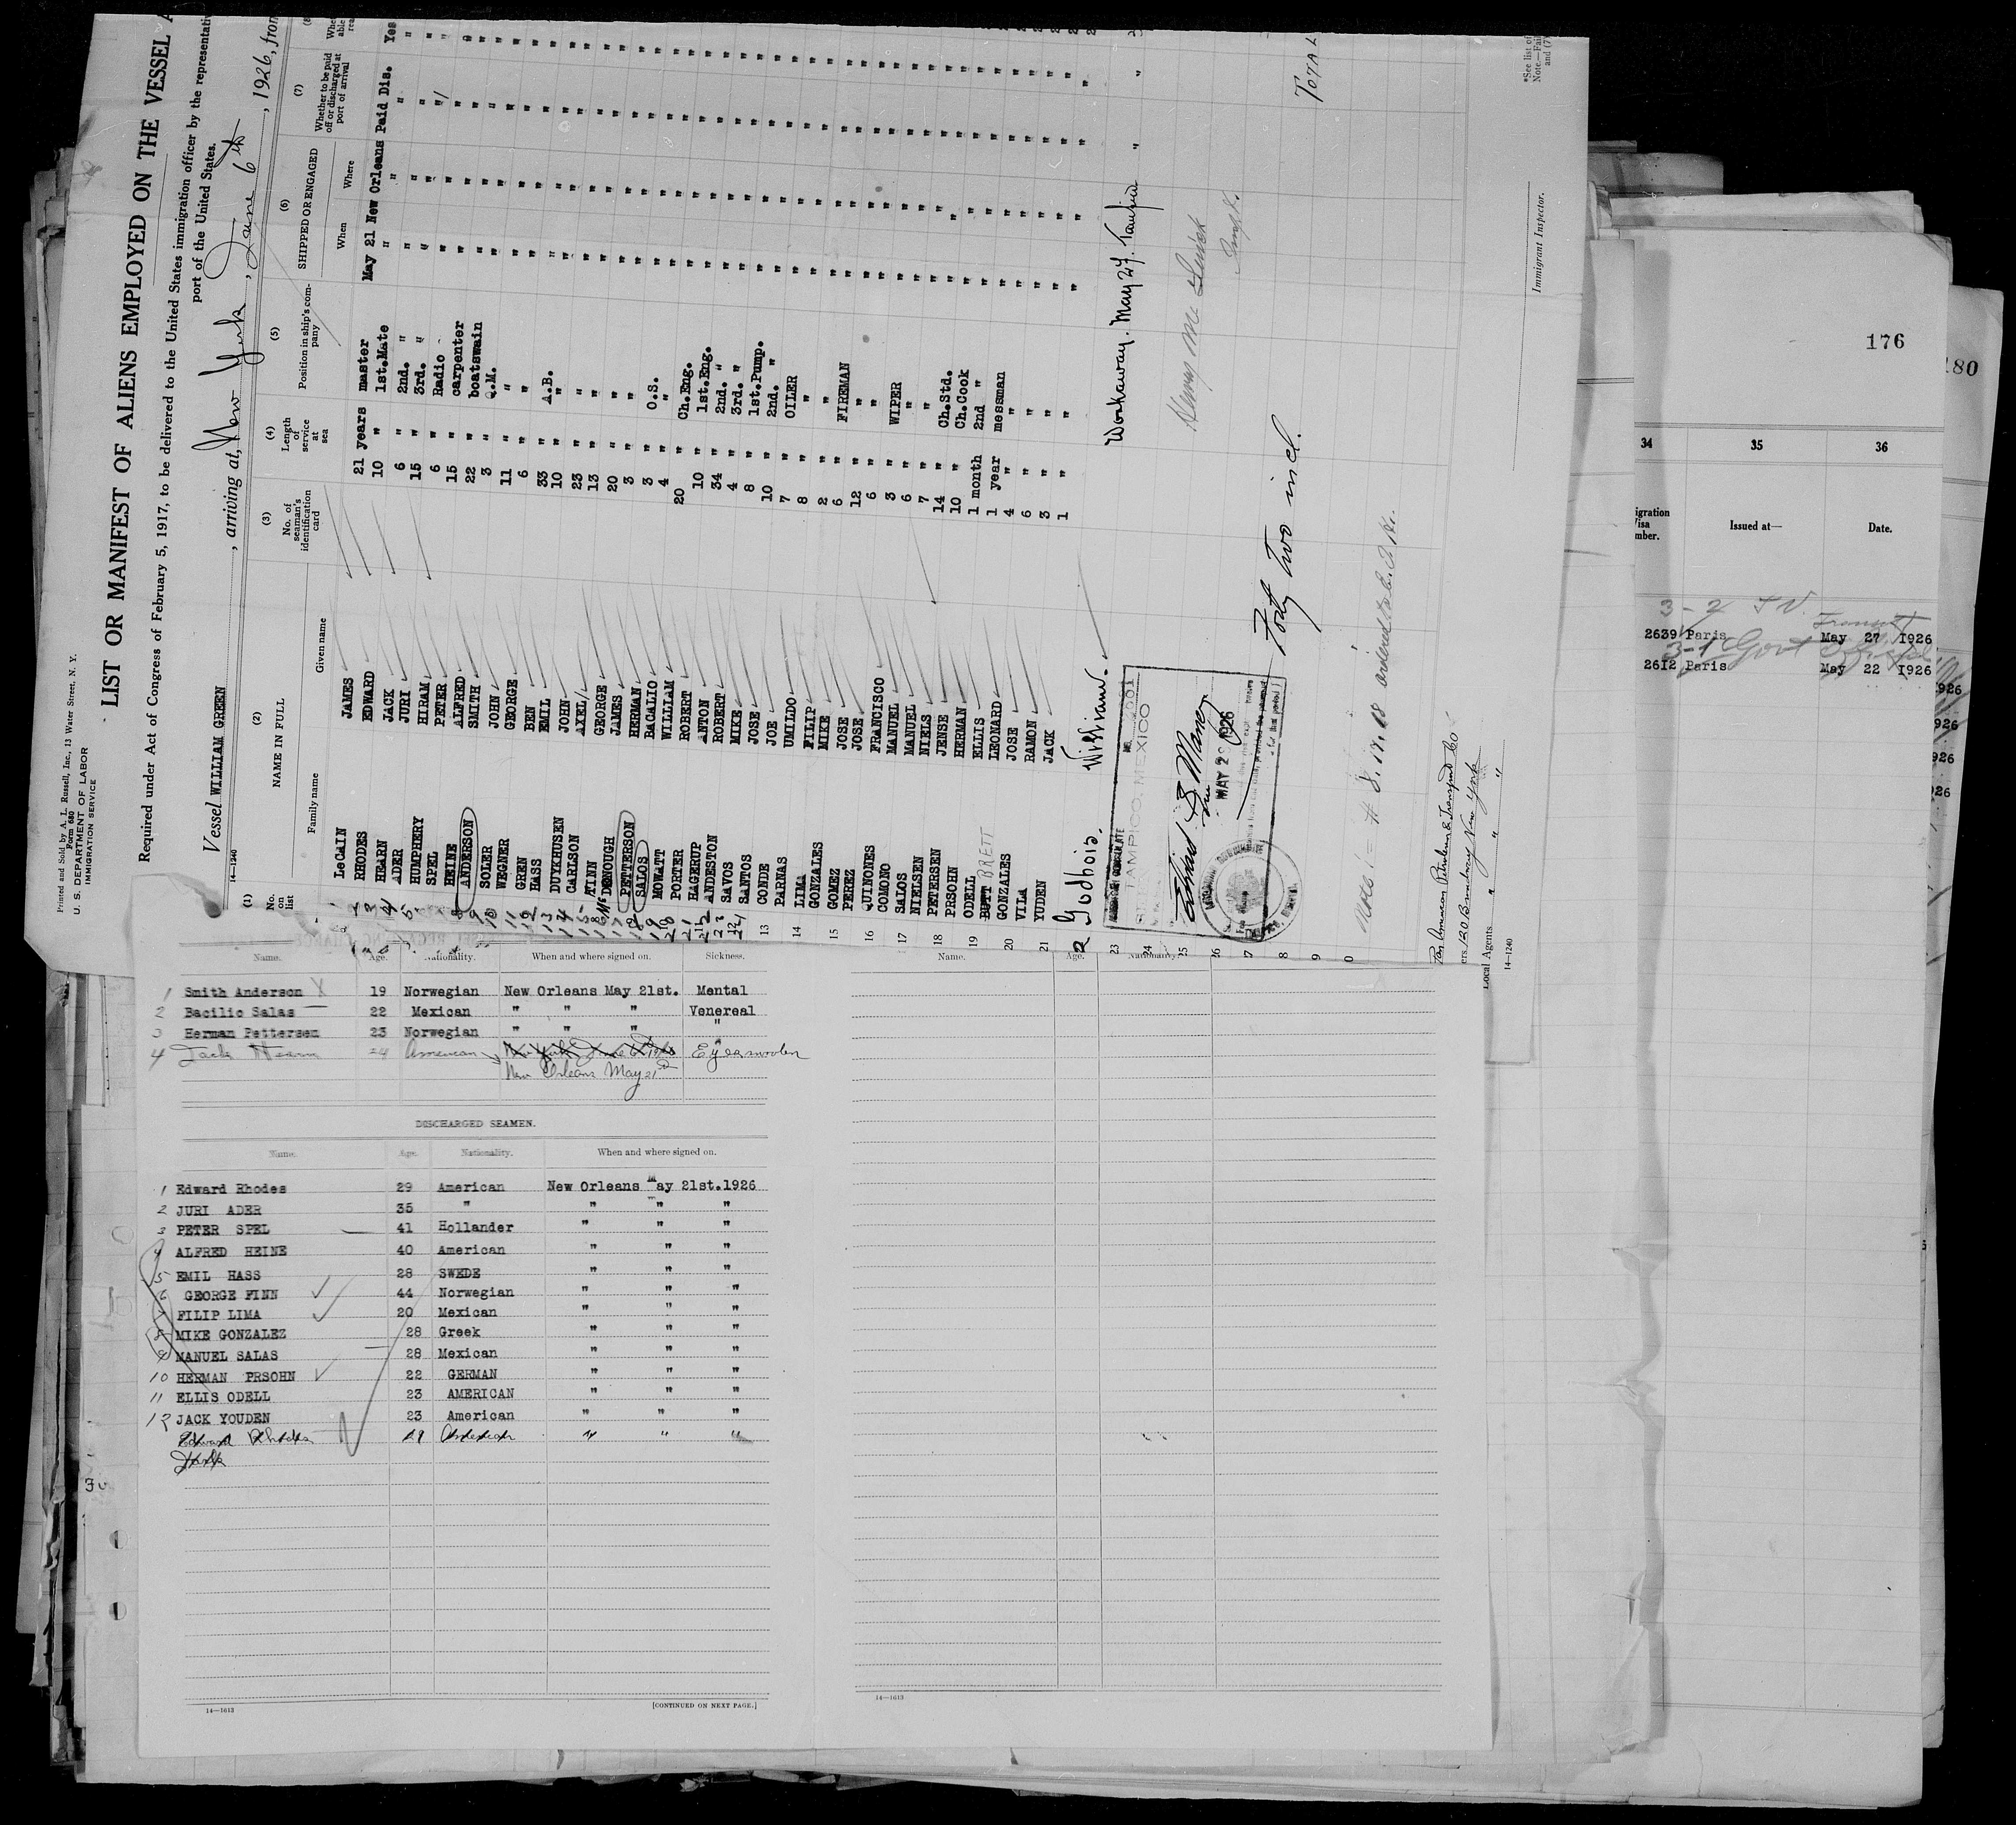 Printed and Sold by A. L. Russell, Inc., 13 Water Street, N. Y.
Form 680
U. S. DEPARTMENT OF LABOR
IMMIGRATION SERVICE
LIST OR MANIFEST OF ALIENS EMPLOYED ON THE VESSEL A
Required under Act of Congress of February 5, 1917, to be delivered to the United States immigration officer by the representativ
port of the United States.
Vessel WILLIAM GREEN, arriving at, New York, June 6th, 1926, from
14-1240
(1) (2) (3) (4) (5) (6) (7) (8
No. on list
NAME IN FULL
Family name Given name
No. of seaman's identification card
Length of service at sea
Position in ship's company
SHIPPED OR ENGAGED
When Where
Whether to be paid off or discharged at port of arrival
LeCAIN JAMES 21 years master May 21 New Orleans Paid Dis. Yes
RHODES EDWARD 10 " 1st.Mate " " " "
HEARN JACK 6 " 2nd. " " " " "
ADER JURI 15 " 3rd. " " " " "
HUMPHERY HIRAM 6 " Radio " " "
SPEL PETER 15 " carpenter " " " "
HEINE ALFRED 22 " boatswain " " " "
ANDERSON SMITH 3 " Q.M. " " " "
SOLER JOHN 11 " " " " " "
WEGNER GEORGE 6 " " " " " "
GREN BEN 33 " A.B. " " " "
HASS EMIL 10 " " " " " "
DUYKHUSEN JOHN 23 " " " " " "
CARLSON AXEL 13 " " " " " "
FINN GEORGE 20 " " " " " "
McDENOUGH JAMES 3 " " " " " "
PETTERSON HERMAN 3 " O.S. " " " "
SALOS BACALIO 4 " " " " " "
MOWATT WILLIAM 20 " Ch.Eng. " " " "
PORTER ROBERT 10 " 1st.Eng. " " " "
HAGERUP ANTON 34 " 2nd. " " " " "
ANDESTON ROBERT 4 " 3rd. " " " " "
SAVOS MIKE 8 " 1st.Pump. " " " "
SANTOS JOSE 10 " 2nd. " " " " "
CONDE JOE 7 " OILER " " " "
PARNAS UMILDO 8 " " " " " "
LIMA FILIP 2 " " " " " "
GONZALES MIKE 6 " FIREMAN " " " "
GOMEZ JOSE 12 " " " " " "
PEREZ JOSE 6 " " " " " "
QUINONES FRANCISCO 3 " WIPER " " " "
COMONO MANUEL 6 " " " " " "
SALOS MANUEL 7 " " " " " "
NIELSEN NIELS 14 " Ch.Std. " " " "
PETERSEN JENSE 10 " Ch.Cook " " " "
PRSOHN HERMAN 1 month 2nd " " " " "
ODELL ELLIS 1 year messman " " " "
BUTT BRETT LEONARD 4 " " " " " "
GONZALES JOSE 6 " " " " " "
VILA RAMON 3 " " " " " "
YUDEN JACK 1 " " " " " "
Godbois, William. Workaway. May 27. Tampico " "
TAMPICO, MEXICO
MAY 2 1926
Forty two incl.
TOTAL
Immigrant Inspector.
Pan American Petroleum & Transport Co
120 Broadway New York
Local Agents " " "
14-1240
*See list of
Note.—Fai
and (7)
Name. Age. Nationality. When and where signed on. Sickness.
1 Smith Anderson X 19 Norwegian New Orleans May 21st. Mental
2 Bacilic Salas 22 Mexican " " " Venereal
3 Herman Pettersen 23 Norwegian " " " "
4 Jack Hearn 24 American New York June 6 1926 Eye swoolen
New Orleans May 21st
DISCHARGED SEAMEN.
Name. Age. Nationality. When and where signed on.
1 Edward Rhodes 29 American New Orleans May 21st.1926
2 JURI ADER 35 " " " "
3 PETER SPEL 41 Hollander " " "
4 ALFRED HEINE 40 American " " "
5 EMIL HASS 28 SWEDE " " "
6 GEORGE FINN 44 Norwegian " " "
7 FILIP LIMA 20 Mexican " " "
8 MIKE GONZALEZ 28 Greek " " "
9 MANUEL SALAS 28 Mexican " " "
10 HERMAN PRSOHN 22 GERMAN " " "
11 ELLIS ODELL 23 AMERICAN " " "
12 JACK YOUDEN 23 American " " "
Edward Rhodes 29 American " " "
Jack
[CONTINUED ON NEXT PAGE.]
14—1613
Name. Age. Nationality.
14—1613
176
180
34 35 36
Issued at— Date.
2639 Paris May 27 1926
2612 Paris May 22 1926